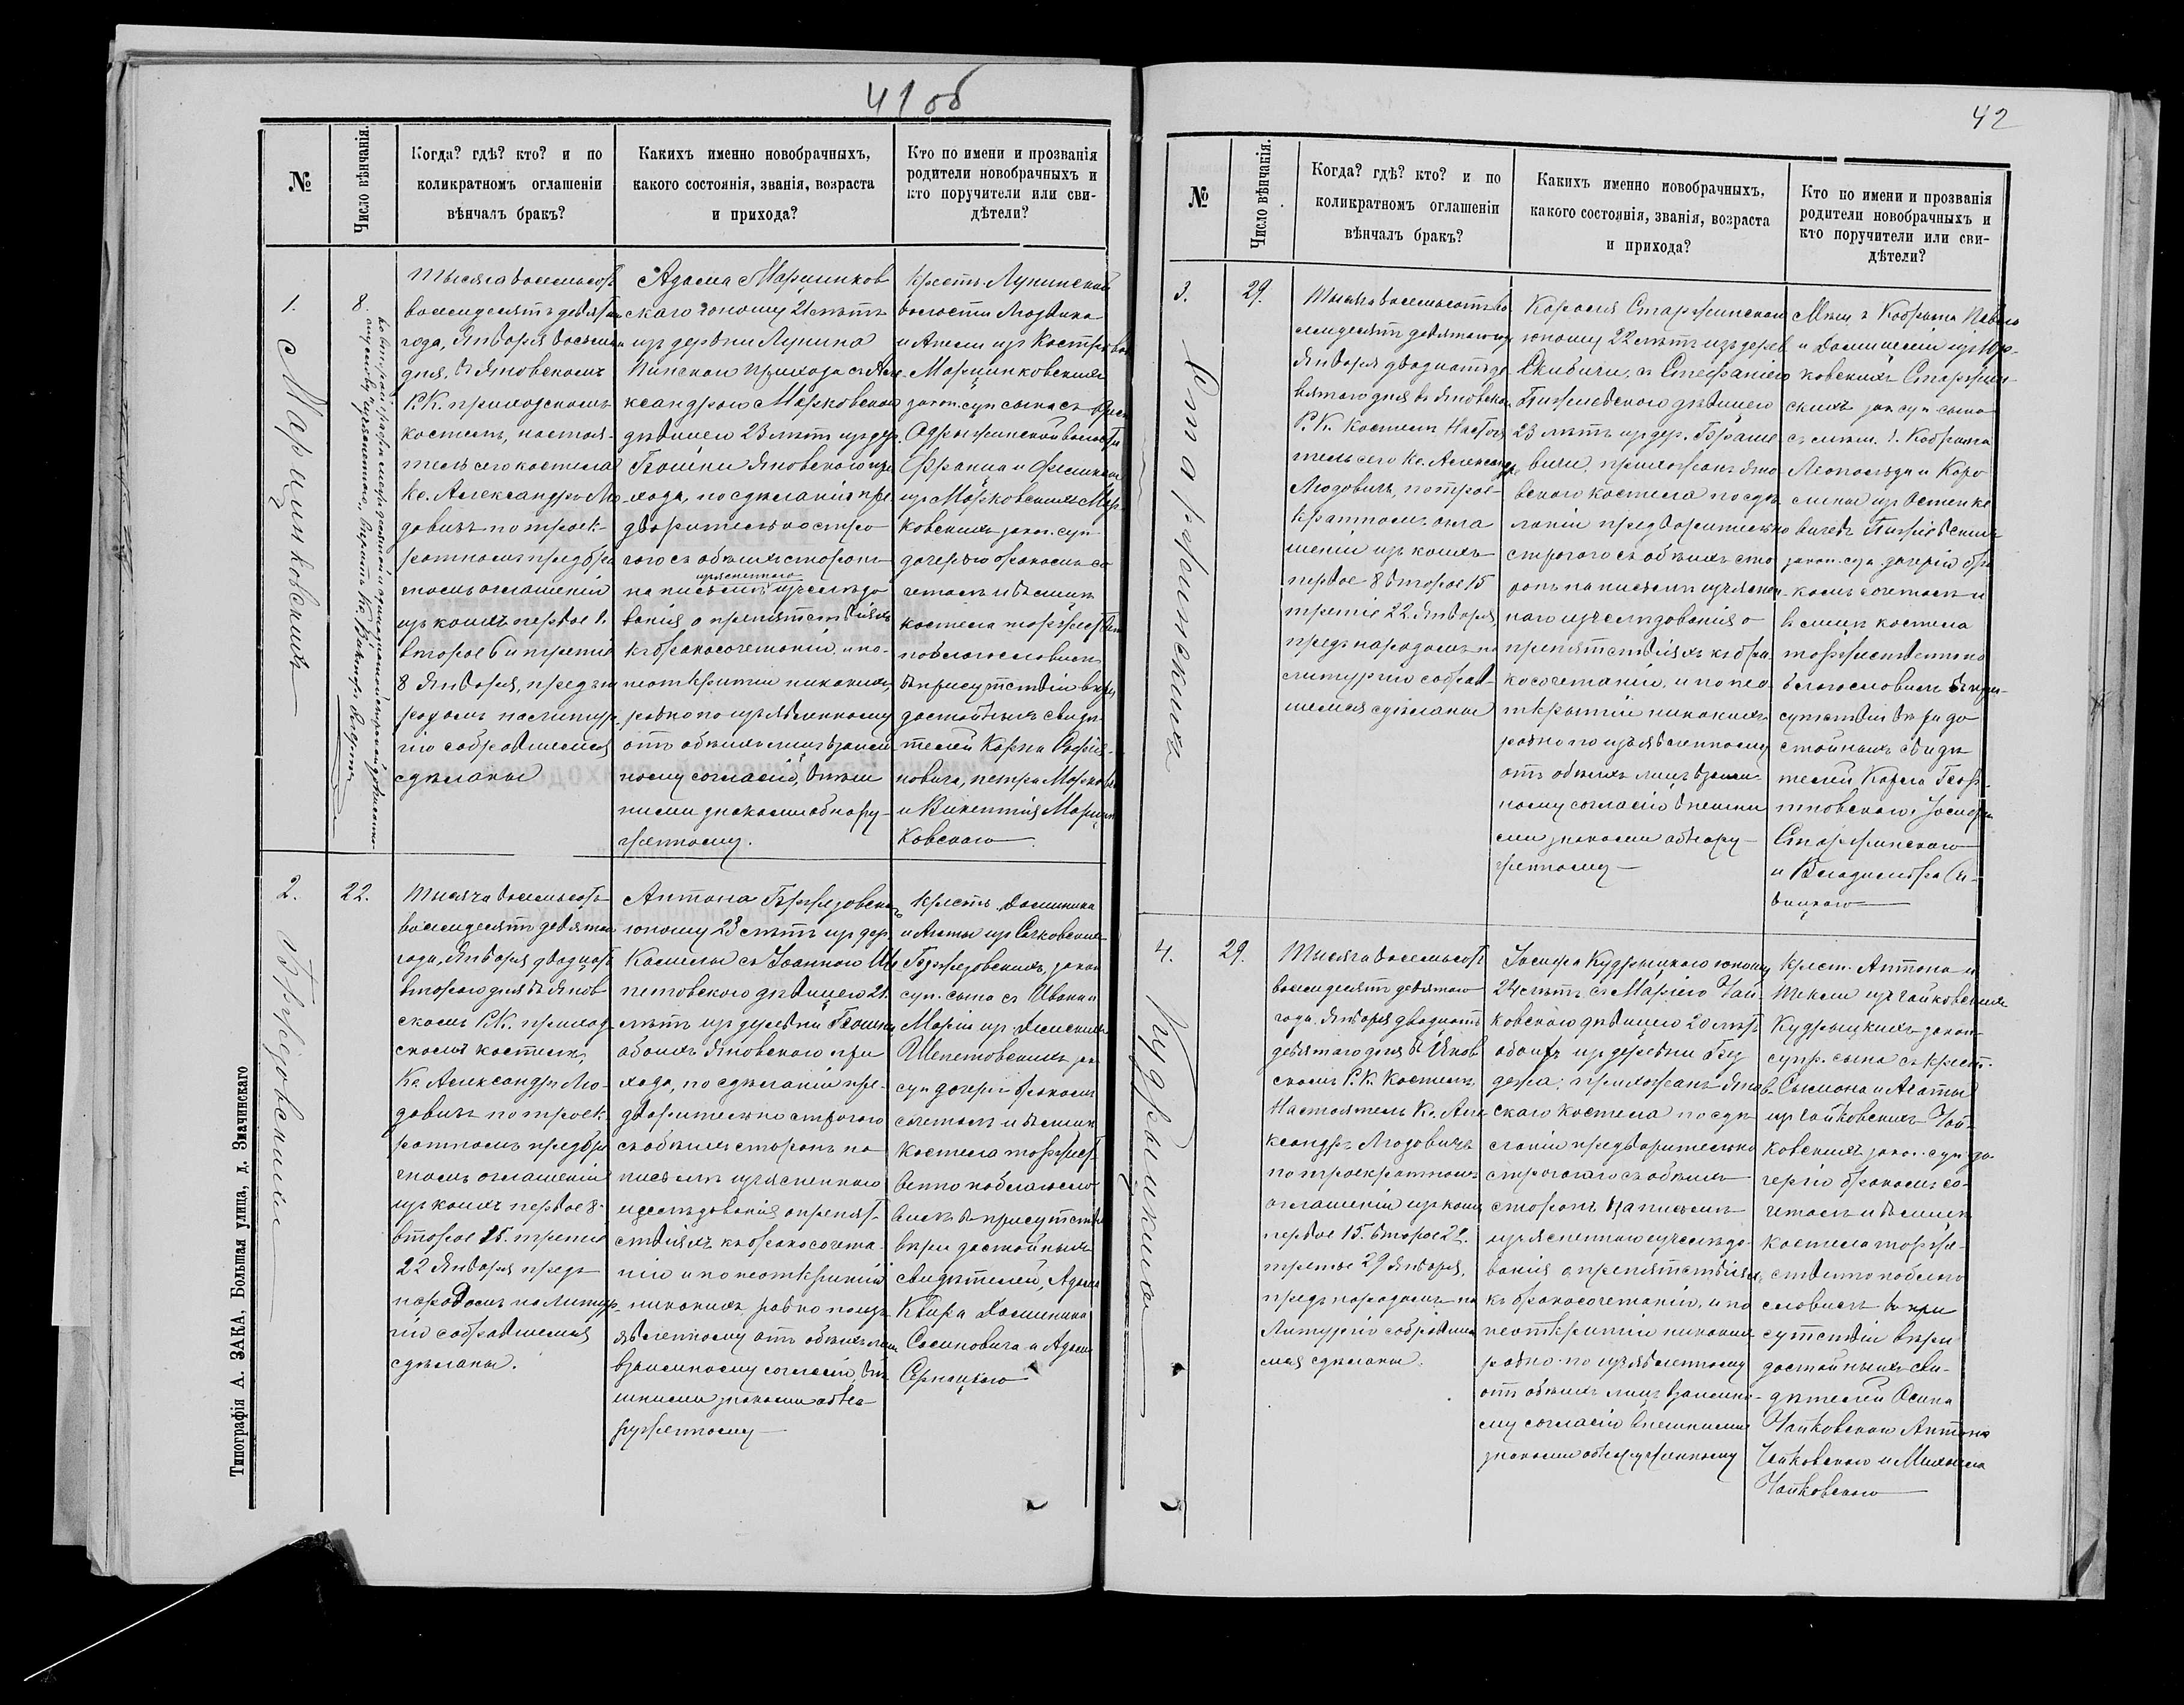 41 об
№
Число вѣнчанія.
Когда? гдѣ? кто? и по
коликратномъ оглашеніи
вѣнчалъ бракъ?
Какихъ именно новобрачныхъ,
какого состоянія, званія, возраста
и прихода?
Кто по имени и прозванія
родители новобрачныхъ и
кто поручители или сви-
дѣтели?
1.
Марцинковскихъ
8.
Тысяча восемьсотъ
восемдесятъ девятаго
года, Января восьмаго
дня, въ Яновскомъ
Р.К. приходскомъ
костелѣ, настоя-
тель сего костела
Кс. Александръ Лю-
довичъ по троек-
ратномъ предбра
чномъ оглашеніи
изъ коихъ первое 1.
второе 6 и третіе
8 Января, предъ на
родомъ на литур
гію собравшемся
сдѣланы
Адама Марцинков
скаго юношу 21 лѣтъ
изъ деревни Лунина
Пинскаго прихода съ Але
ксандрою Марковскою
дѣвицею 23 лѣтъ изъ дер.
Глошки Яновскаго при
хода, по сдѣланіи пре
дварительно стро
гого съ обѣихъ сторонъ
изъясненного
на письмѣ изслѣдо
ванія о препятствіяхъ
къ бракосочетанію, и по
неоткрытіи никакихъ,
равно по изъявленному
отъ обѣихъ лицъ взаим
ному согласію, внѣш
ними знаками обнару-
женному.
Крест. Лунинской
волости Людвика
и Анели изъ
Марцинковскихъ
закон. суп сына съ
Одрыжинской волости
Франца и
изъ Марковскихъ Мар
ковскихъ закон. суп
дочерью бракомъ со
четалъ и въ лицѣ
костела торжествен
поблагословилъ
въ присутствіи вѣры
достойныхъ свидѣ
телей Карла
новича, петра Марковск
и Викентія Марцин
ковскаго
2.
22.
Тысяча восемьсотъ
восемдесятъ девятаго
года, Января двадцать
втораго дня въ Янов
скомъ Р.К. приход
скомъ костелѣ
Кс Александръ Лю-
довичъ по троек
ратномъ предбра
чномъ оглашеніи
изъ коихъ первое 8.
второе 15. третіе
22 Января предъ
народомъ на Литур
гію собравшемся
сдѣланы.
Антона
юношу 23 лѣтъ изъ дер.
съ Іоанною Ше
петовскою дѣвицею 21.
лѣтъ изъ деревни Глошки
обоихъ Яновскаго при
хода, по сдѣланіи пре-
дварительно строгого
съ обѣихъ сторонъ на
письмѣ изъясненного
изслѣдованія о препят-
ствіяхъ къ бракосочета
нію и по неоткрытіи
никакихъ равно по изъ
явленному отъ обѣихъ лицъ
взаимному согласію, внѣ
шними знаками обна
руженному
Крестъ Доминика
и Анны изъ
закон
суп. сына съ Ивана и
Маріи изъ
Шепетовскихъ за
суп дочерью бракомъ
сочеталъ и въ лицѣ
костела торжест
венно поблагосло
вилъ въ присутствіи
вѣры достойныхъ
свидѣтелей, Адама
Доминика
и Адама
3.
Старжинскихъ
29.
Тысяча восемьсотъ во
семдесятъ девятаго года
Января двадцать де
вятаго дня въ Яновском
Р.К. Костелѣ Настоя
тель сего Кс. Александръ
Людовичъ, по трое-
кратномъ огла
шеніи изъ коихъ
первое 8 второе 15
третіе 22 Января,
предъ народомъ на
литургію собрав-
шемся сдѣланы
Кароля Старжинскаго
юношу 22 лѣтъ изъ дерев
съ Стефаніею
дѣвицею
23 лѣтъ изъ дер.
вичи, прихожанъ Яно
вского костела по сдѣ
ланіи предварительно
строгого съ обѣихъ сто
ронъ на письмѣ изъяснен-
наго изслѣдованія о
препятствіяхъ къ бра
косочетанію, и по нео
ткрытіи никакихъ
равно по изъявленному
отъ обѣихъ лицъ взаим
ному согласію внѣшни
ми знаками обнару-
женному
Мѣщ г Кобрына Павла
и Доминики изъ
Старжин-
скихъ зак суп сына
съ мѣщ. г. Кобрына
Леопольда и Каро
лины изъ
закон. суп. дочерью бра
комъ сочеталъ и
въ лицѣ костела
торжественно
благословилъ въ при-
сутствіи вѣры до
стойныхъ свидѣ
телей Карла
Іосифа
Старжинскаго
и Владиміра
4.
Кудрыцкихъ
29.
Тысяча восемьсотъ
восемдесятъ девятаго
года Января двадцать
девятаго дня въ Янов
скомъ Р.К. Костелѣ
Настоятель Кс. Але
ксандръ Людовичъ
по троекратномъ
оглашеніи изъ коихъ
первое 15. второе 22.
третье 29 Января,
предъ народомъ на
Литургію собравше
мся сдѣланы.
Іосифа Кудрыцкаго юношу
24 лѣтъ съ Маріею Чай
ковскою дѣвицею 20 лѣтъ
обоихъ изъ деревни
прихожанъ Янов
скаго костела по сдѣ
ланіи предварительно
строгого съ обѣихъ
сторонъ на письмѣ
изъясненного изслѣдо
ванія о препятствіяхъ
къ бракосочетанію, и по
неоткрытіи никакихъ
равно по изъявленному
отъ обѣихъ лицъ взаимно-
му согласію внѣшними
знаками обнаруженному
Крест. Антона и
Теклы изъ Чайковскихъ
Кудрыцкихъ закон-
супр. сына съ крест.
Сымона и Агаты
изъ Чайковскихъ Чай-
ковскихъ закон. суп до
черью бракомъ со-
четалъ и въ лицѣ
костела торже-
ственно поблаго
словилъ въ при
сутствіи вѣры
достойныхъ сви-
дѣтелей Осипа
Чайковскаго Антона
Чайковскаго и Михаила
Чайковскаго
42
Типографія А. ЗАКА, Большая улица, д. Значинскаго